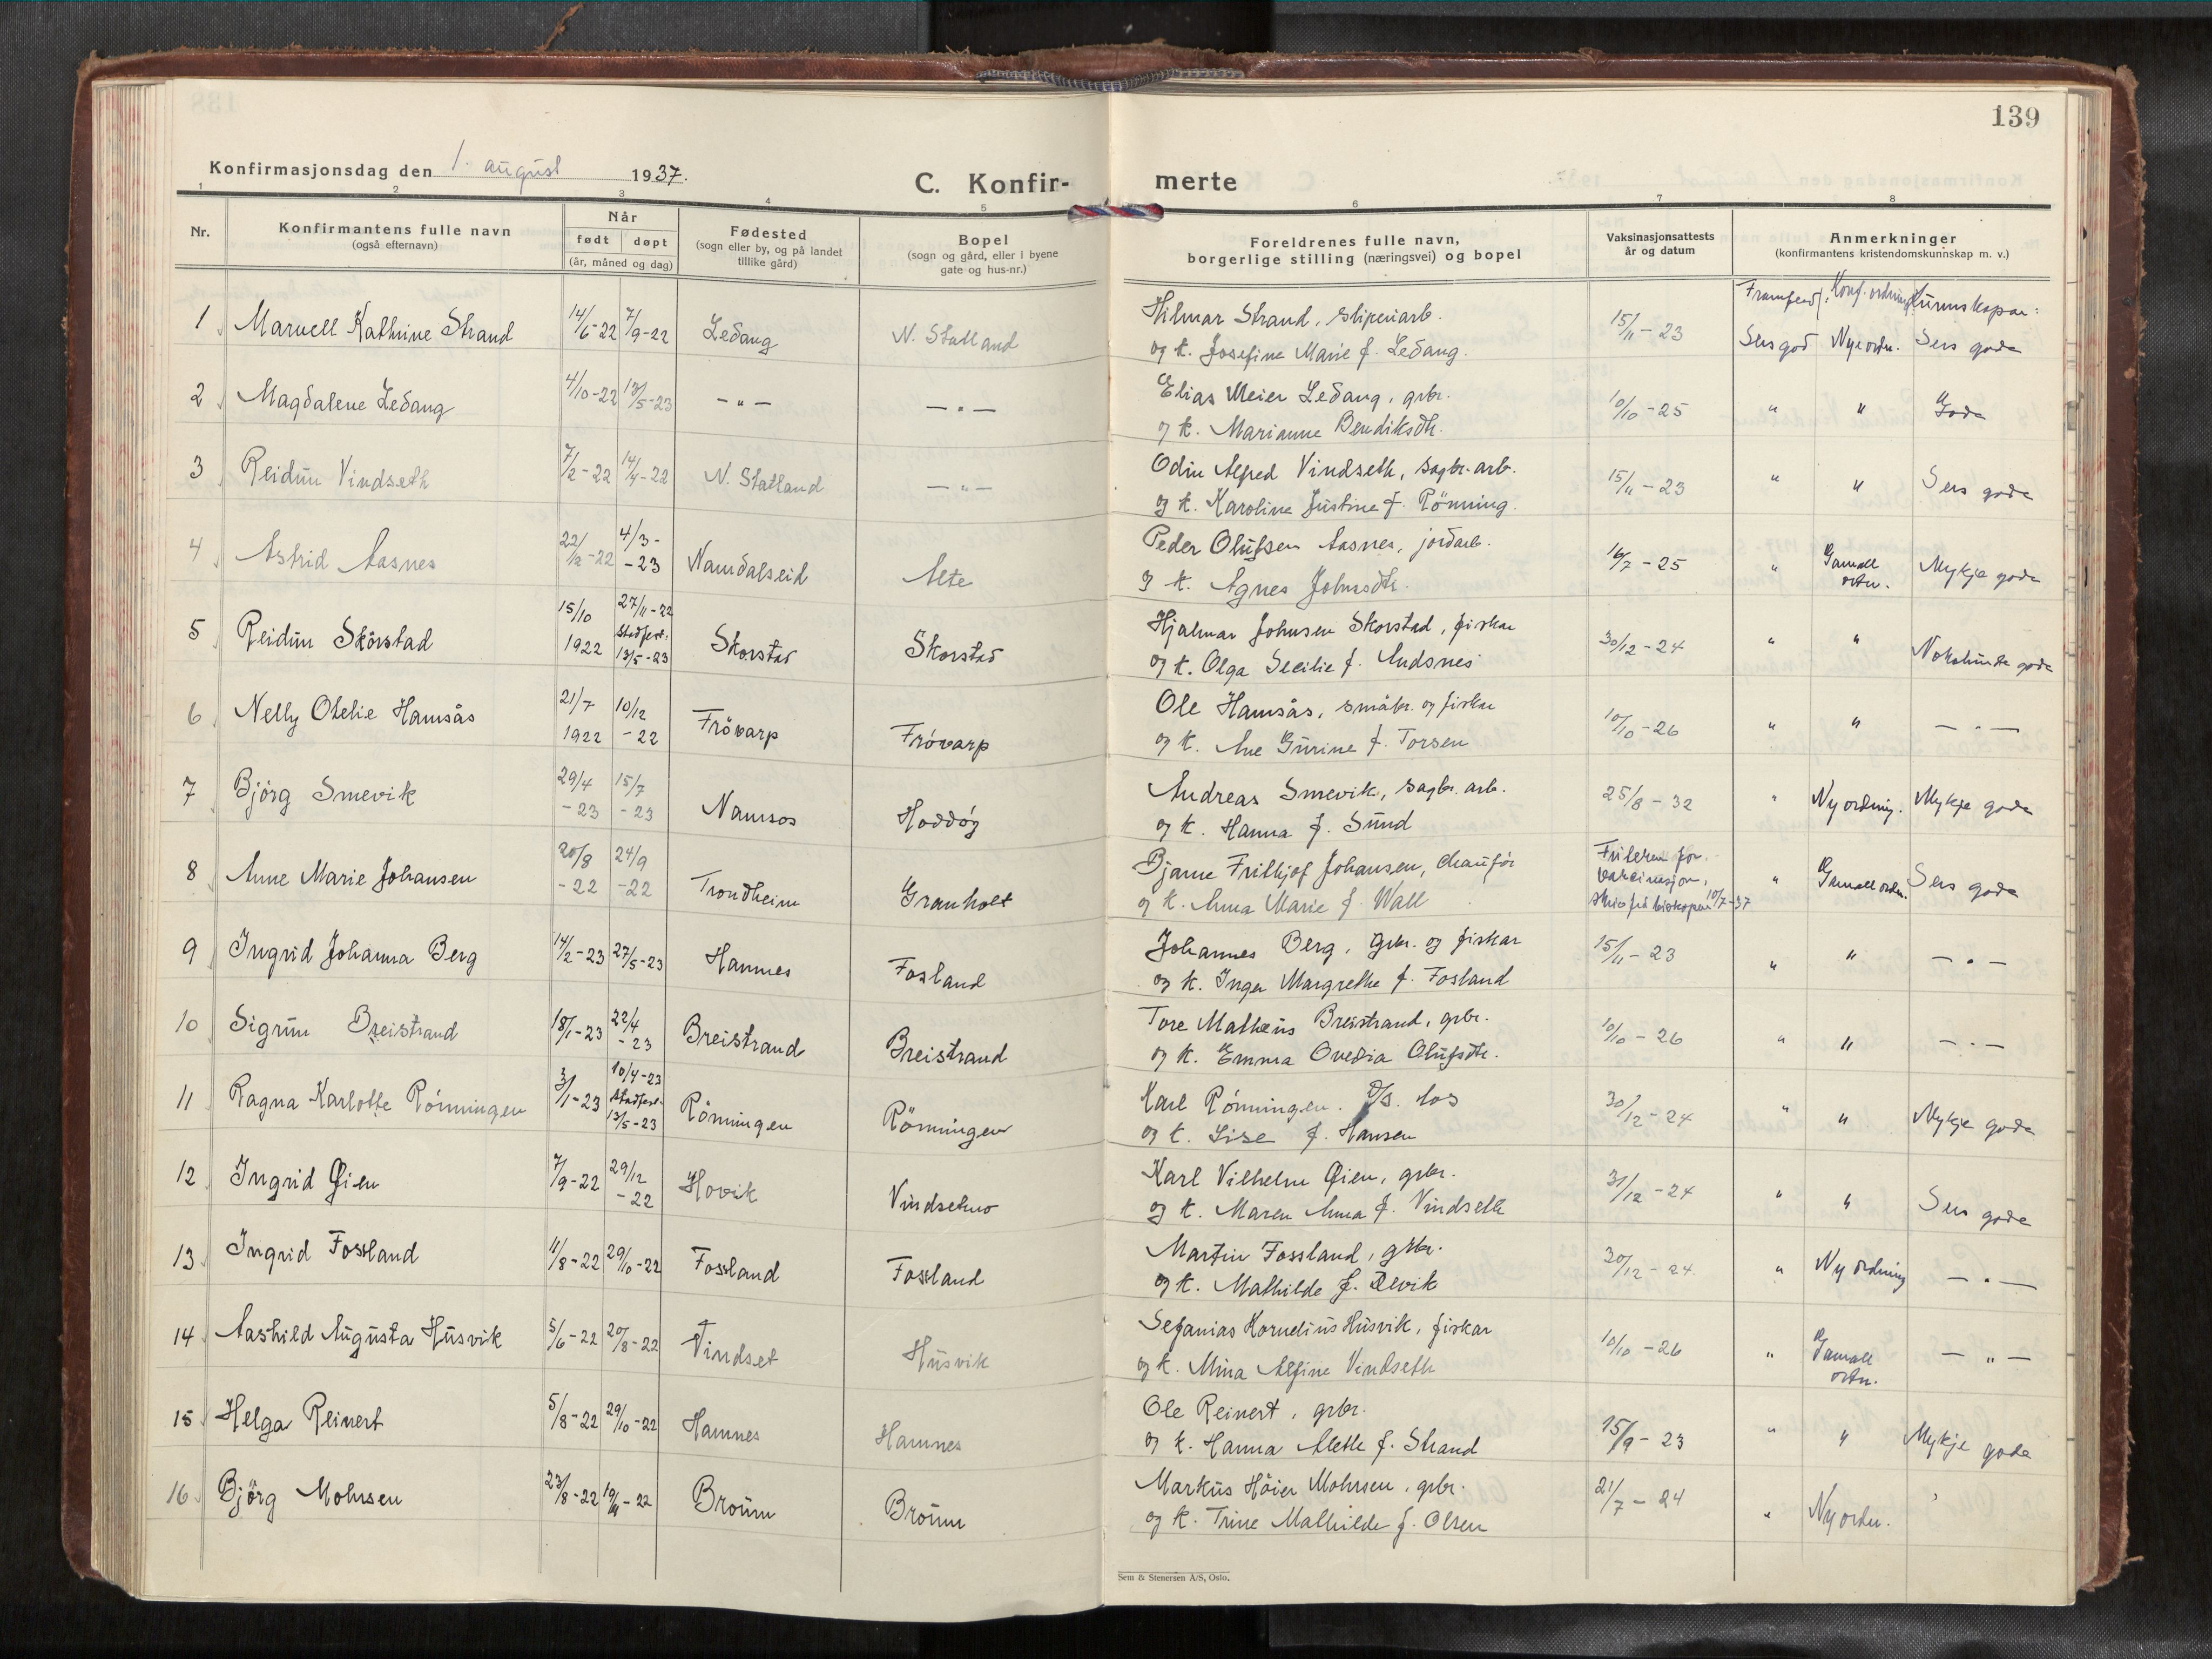 139
Konfirmasjonsdag den 1. august 1937.
C. Konfir-
merte
1 2 3 4 5 6 7 8
Nr.
Konfirmantens fulle navn
(også efternavn)
Når
født døpt
(år, måned og dag)
Fødested
(sogn eller by, og på landet
tillike gård)
Bopel
(sogn og gård, eller i byene
gate og hus-nr.)
Foreldrenes fulle navn,
borgerlige stilling (næringsvei) og bopel
Vaksinasjonsattests
år og datum
Anmerkninger
(konfirmantens kristendomskunnskap m. v.)
Framferd: Konf. ordning Kunnskapar:
1 Marvell Kathrine Strand 14/6-22 7/9-22 Ledang N. Statland Hilmar Strand, sliperiarb. 15/11-23 Sers god Nye ordn. Sers gode
og k. Josefine Marie f. Ledang.
2 Magdalene Ledang 4/10-22 13/5-23 -"- -"- Elias Meier Ledang, grbr. 10/10-25 " " Gode
og k. Marianne Bendiksdtr.
3 Reidun Vindseth 7/2-22 14/4-22 N. Statland -"- Odin Alfred Vindseth, sagbr. arb. 15/11-23 " " Sers gode
og k. Karoline Justine f. Rönning.
4 Astrid Aasnes 22/12-22 4/3-23 Namdalseid Alte Peder Olufsen Aasnes, jordarb. 16/7-25 " Gamall ordn. Mykje gode
og k. Agnes Johnsdtr.
5 Reidun Skorstad 15/10 1922 27/11-22 Stadfest: 13/5-23 Skorstad Skorstad Hjalmar Johnsen Skorstad, fiskar 30/12-24 " " Nokolunde gode
og k. Olga Secilie f. Andsnes
6 Nelly Otelie Hamsås 21/7 1922 10/12-22 Frövarp Frövarp Ole Hamsås, småbr. og fiskar 10/10-26 " " -"-
og k. Ane Gurine f. Torsen
7 Björg Smevik 29/4-23 15/7-23 Namsos Hoddöy Andreas Smevik, sagbr. arb. 25/8-32 " Ny ordning. Mykje gode
og k. Hanna f. Sund
8 Anne Marie Johansen 20/8-22 24/9-22 Trondheim Granholt Bjarne Frithjof Johansen, chauför Friteken for vaksinasjon, skriv frå biskopen 10/7-37 " Gamall ordn. Sers gode
og k. Anna Marie f. Wall
9 Ingrid Johanna Berg 14/2-23 27/5-23 Hamnes Fosland Johannes Berg, Grbr. og fiskar 15/11-23 " " -"-
og k. Inga Margrethe f. Fosland
10 Sigrun Breistrand 18/1-23 22/4-23 Breistrand Breistrand Tore Matheus Breistrand, grbr. 10/10-26 " " -"-
og k. Emma Ovedia Olufsdtr.
11 Ragna Karlotte Rönningen 3/1-23 10/4-23 Stadfest. 13/5-23 Rönningen Rönningen Karl Rönningen. D/S. los 30/12-24 " " Mykje gode
og k. Lise f. Hansen
12 Ingrid Øien 7/9-22 29/12-22 Hovik Vindsetmo Karl Vilhelm Øien, grbr. 31/12-24 " " Sers gode
og k. Maren Anna f. Vindseth
13 Ingrid Fossland 11/8-22 29/10-22 Fossland Fossland Martin Fossland, grbr. 30/12-24 " Ny ordning -"-
og k. Mathilde f. Devik
14 Aashild Augusta Husvik 5/6-22 20/8-22 Vindset Husvik Sefanias Kornelius Husvik, fiskar 10/10-26 " Gamall ordn. -"-
og k. Mina Alfine Vindseth
15 Helga Reinert 5/8-22 29/10-22 Hamnes Hamnes Ole Reinert, grbr. 15/9-23 " " Mykje gode
og k. Hanna Aleth f. Strand
16 Björg Mohrsen 23/8-22 19/11-22 Broum Broum Markus Höier Mohrsen, grbr. 21/7-24 " Ny ordn.
og k. Trine Mathilde f. Olsen
Sem & Stenersen A/S, Oslo.